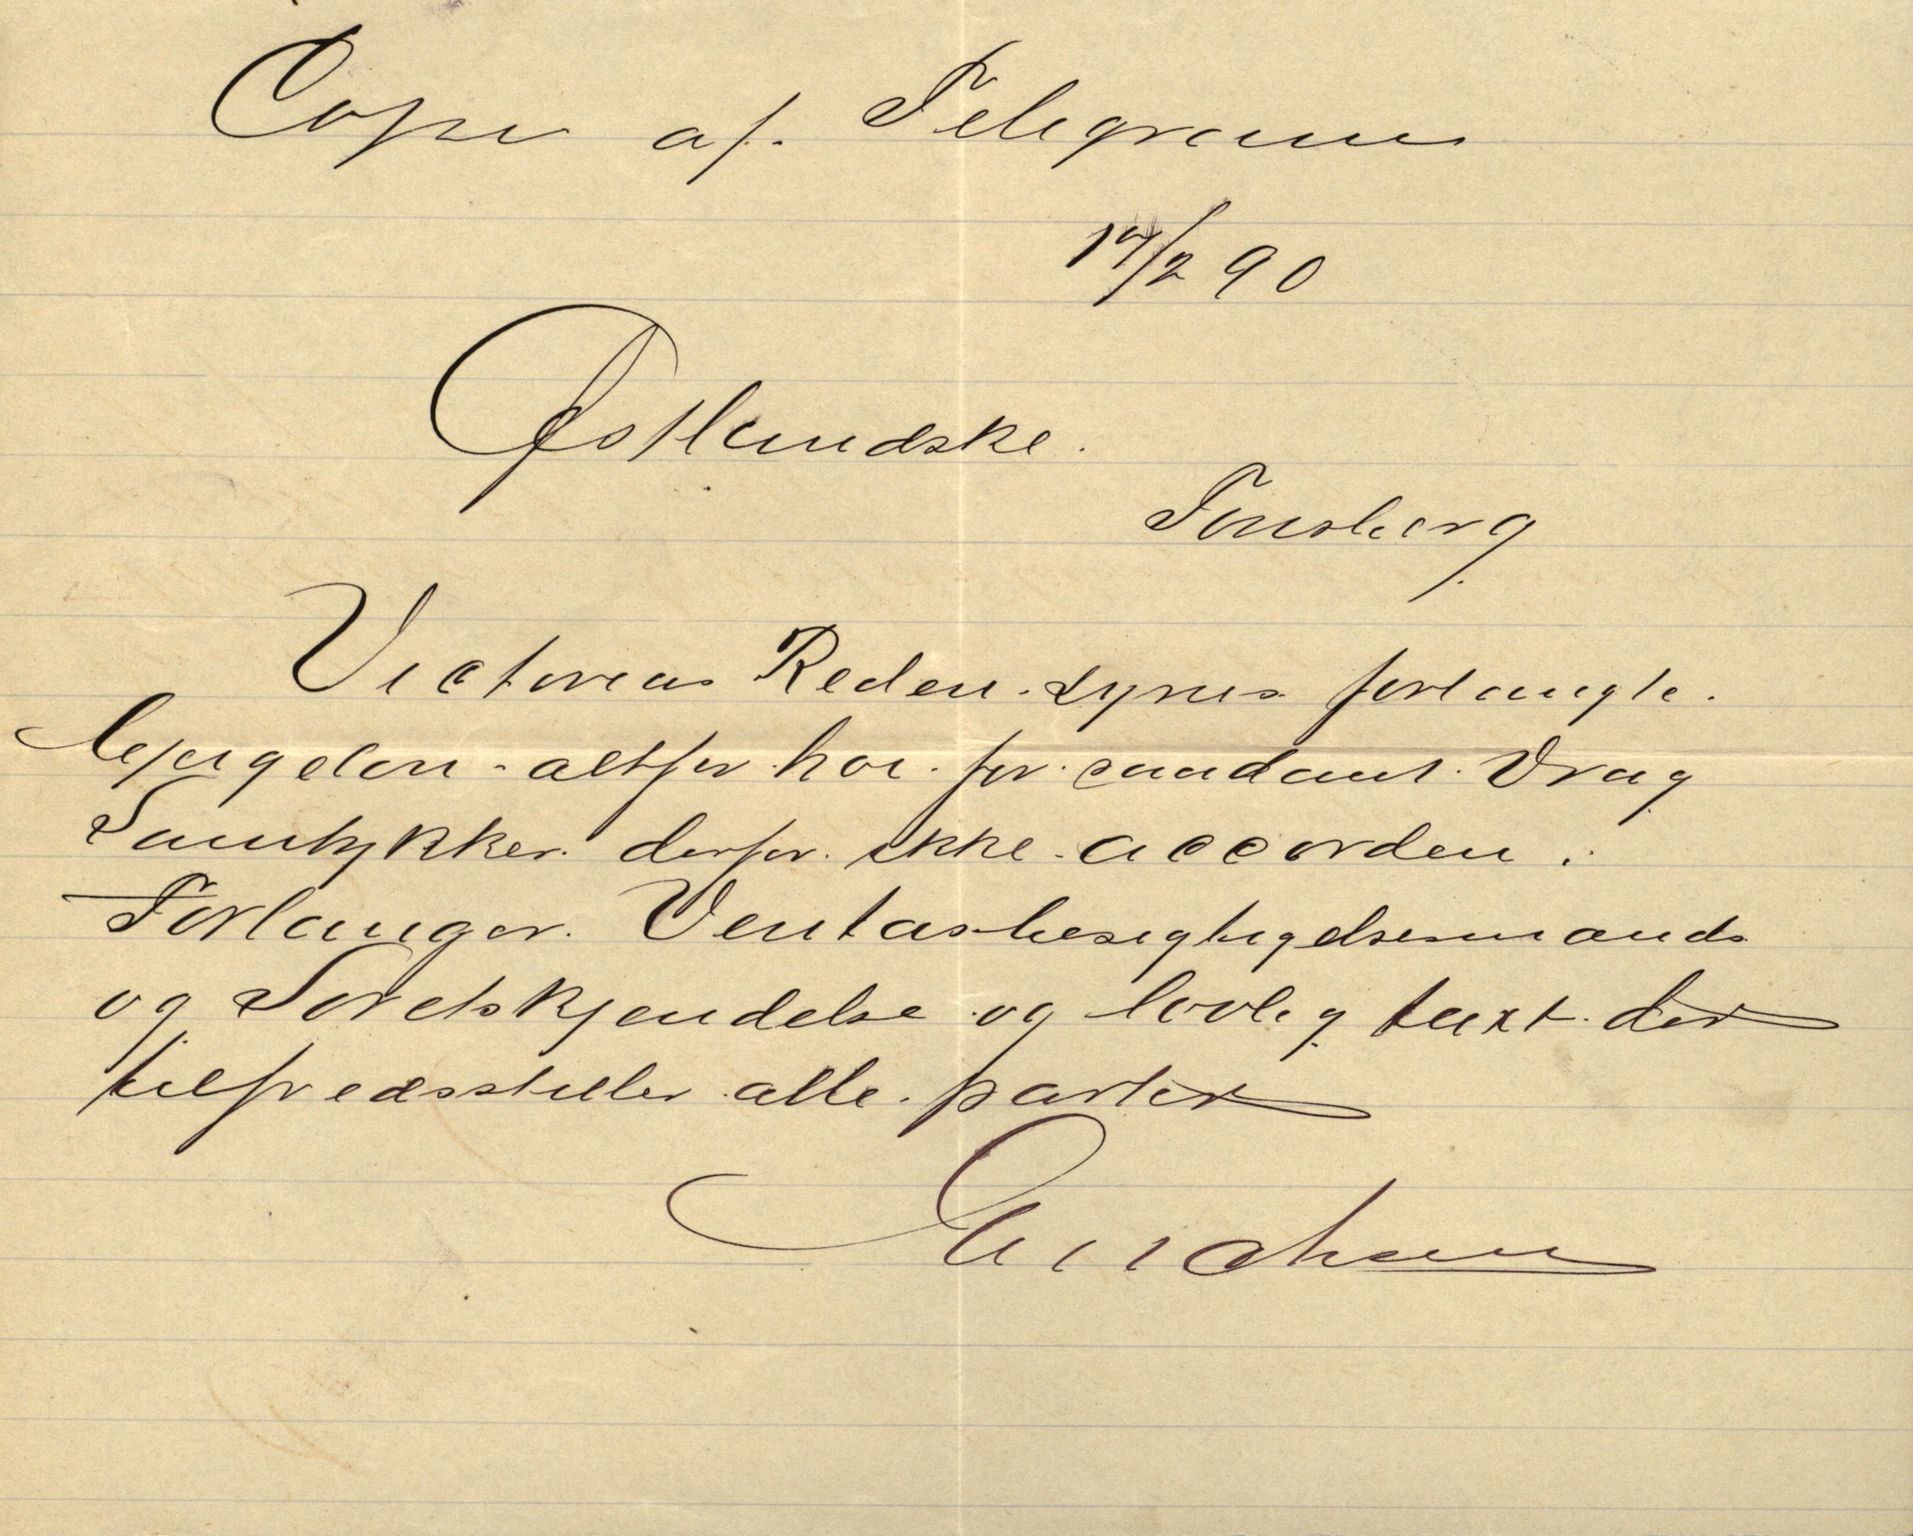 Copi af. Telegram
14/2 90
Østlandske.
Tønsberg
Victorias Rederi synes forlangte
bjergeløn altfor høi for saadant Vrag
Samtykker derfor ikke accorden.
Forlanger Veritasbesigtigelsesmænds
og Søretskjendelse og lovlig taxt der
tilfredsstiller alle parter